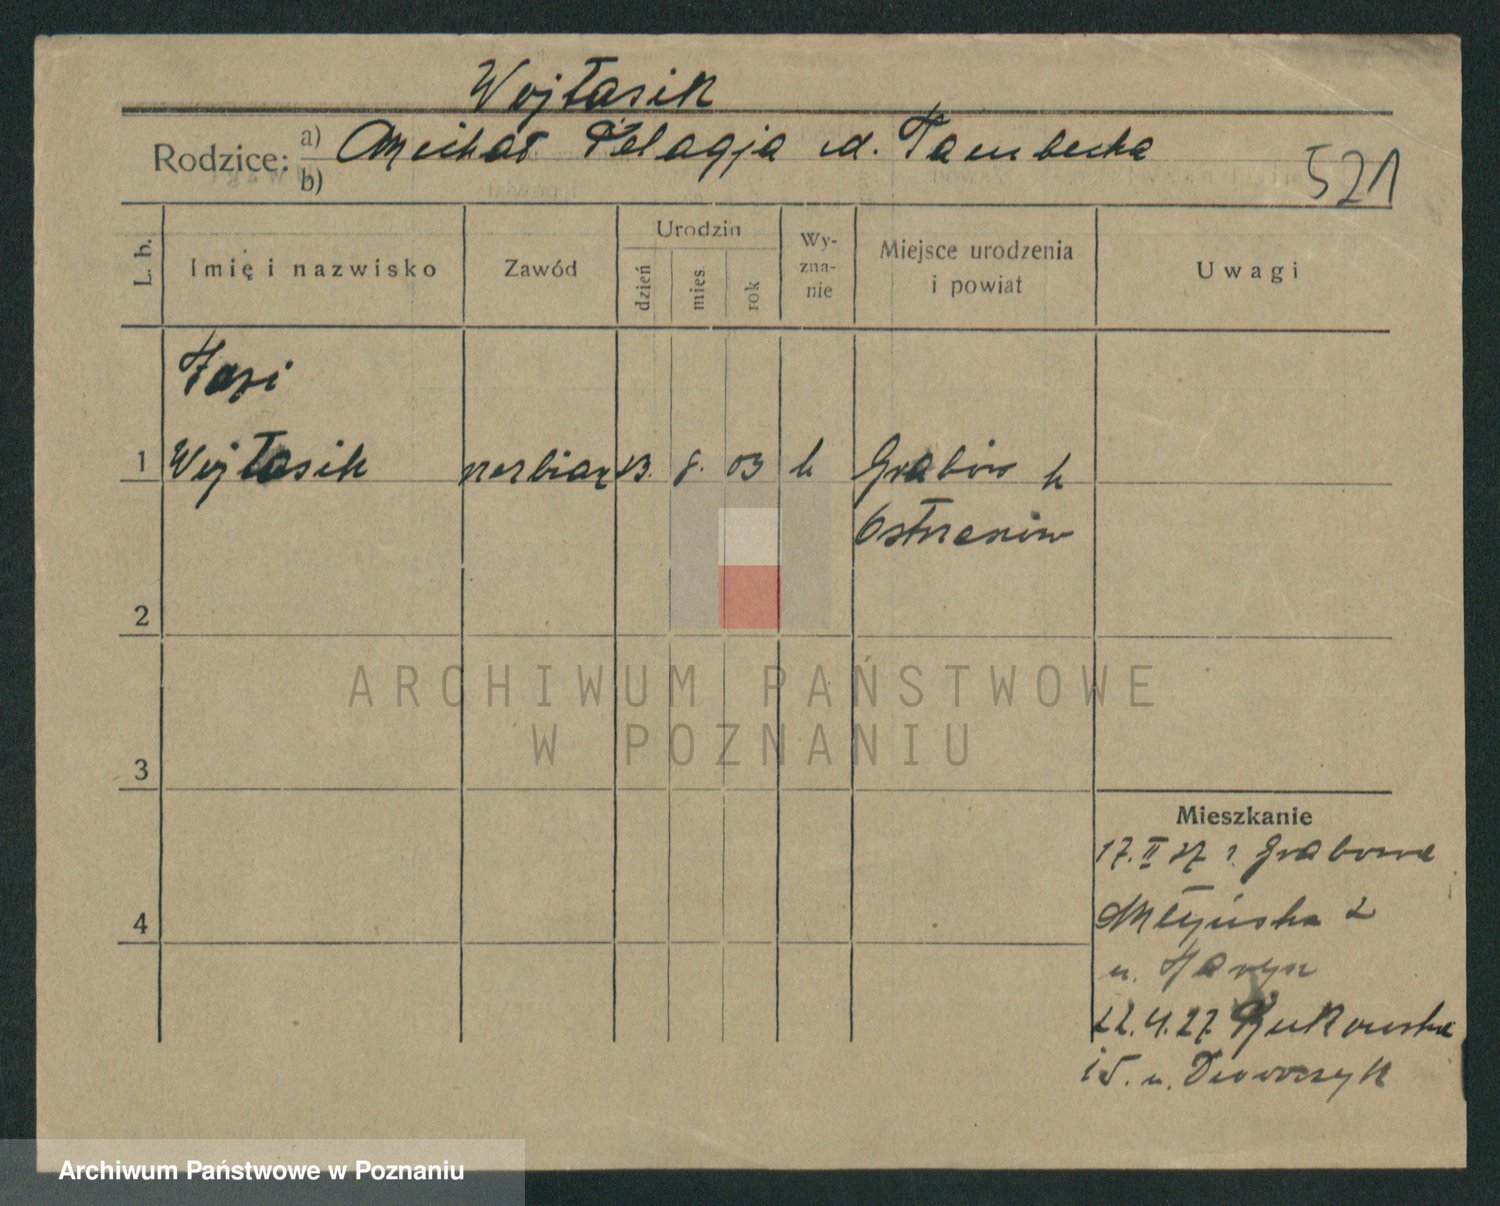 Wojtasik
Rodzice: a) Michał Pelagja
b)
521
L. b.
Imię i nazwisko
Zawód
Urodzin
dzień
mies.
rok
Wy-
zna-
nie
Miejsce urodzenia
i powiat
Uwagi
1 Wojtasik 13. 8. 03 k Grabów k
Ostrzeszów
2
3
Mieszkanie
17. II 27 Grabowa
4
Młyńska 2
u.
22.4.27 Bukowska
15. u. Dworczyk
ARCHIWUM PAŃSTWOWE
W POZNANIU
Archiwum Państwowe w Poznaniu